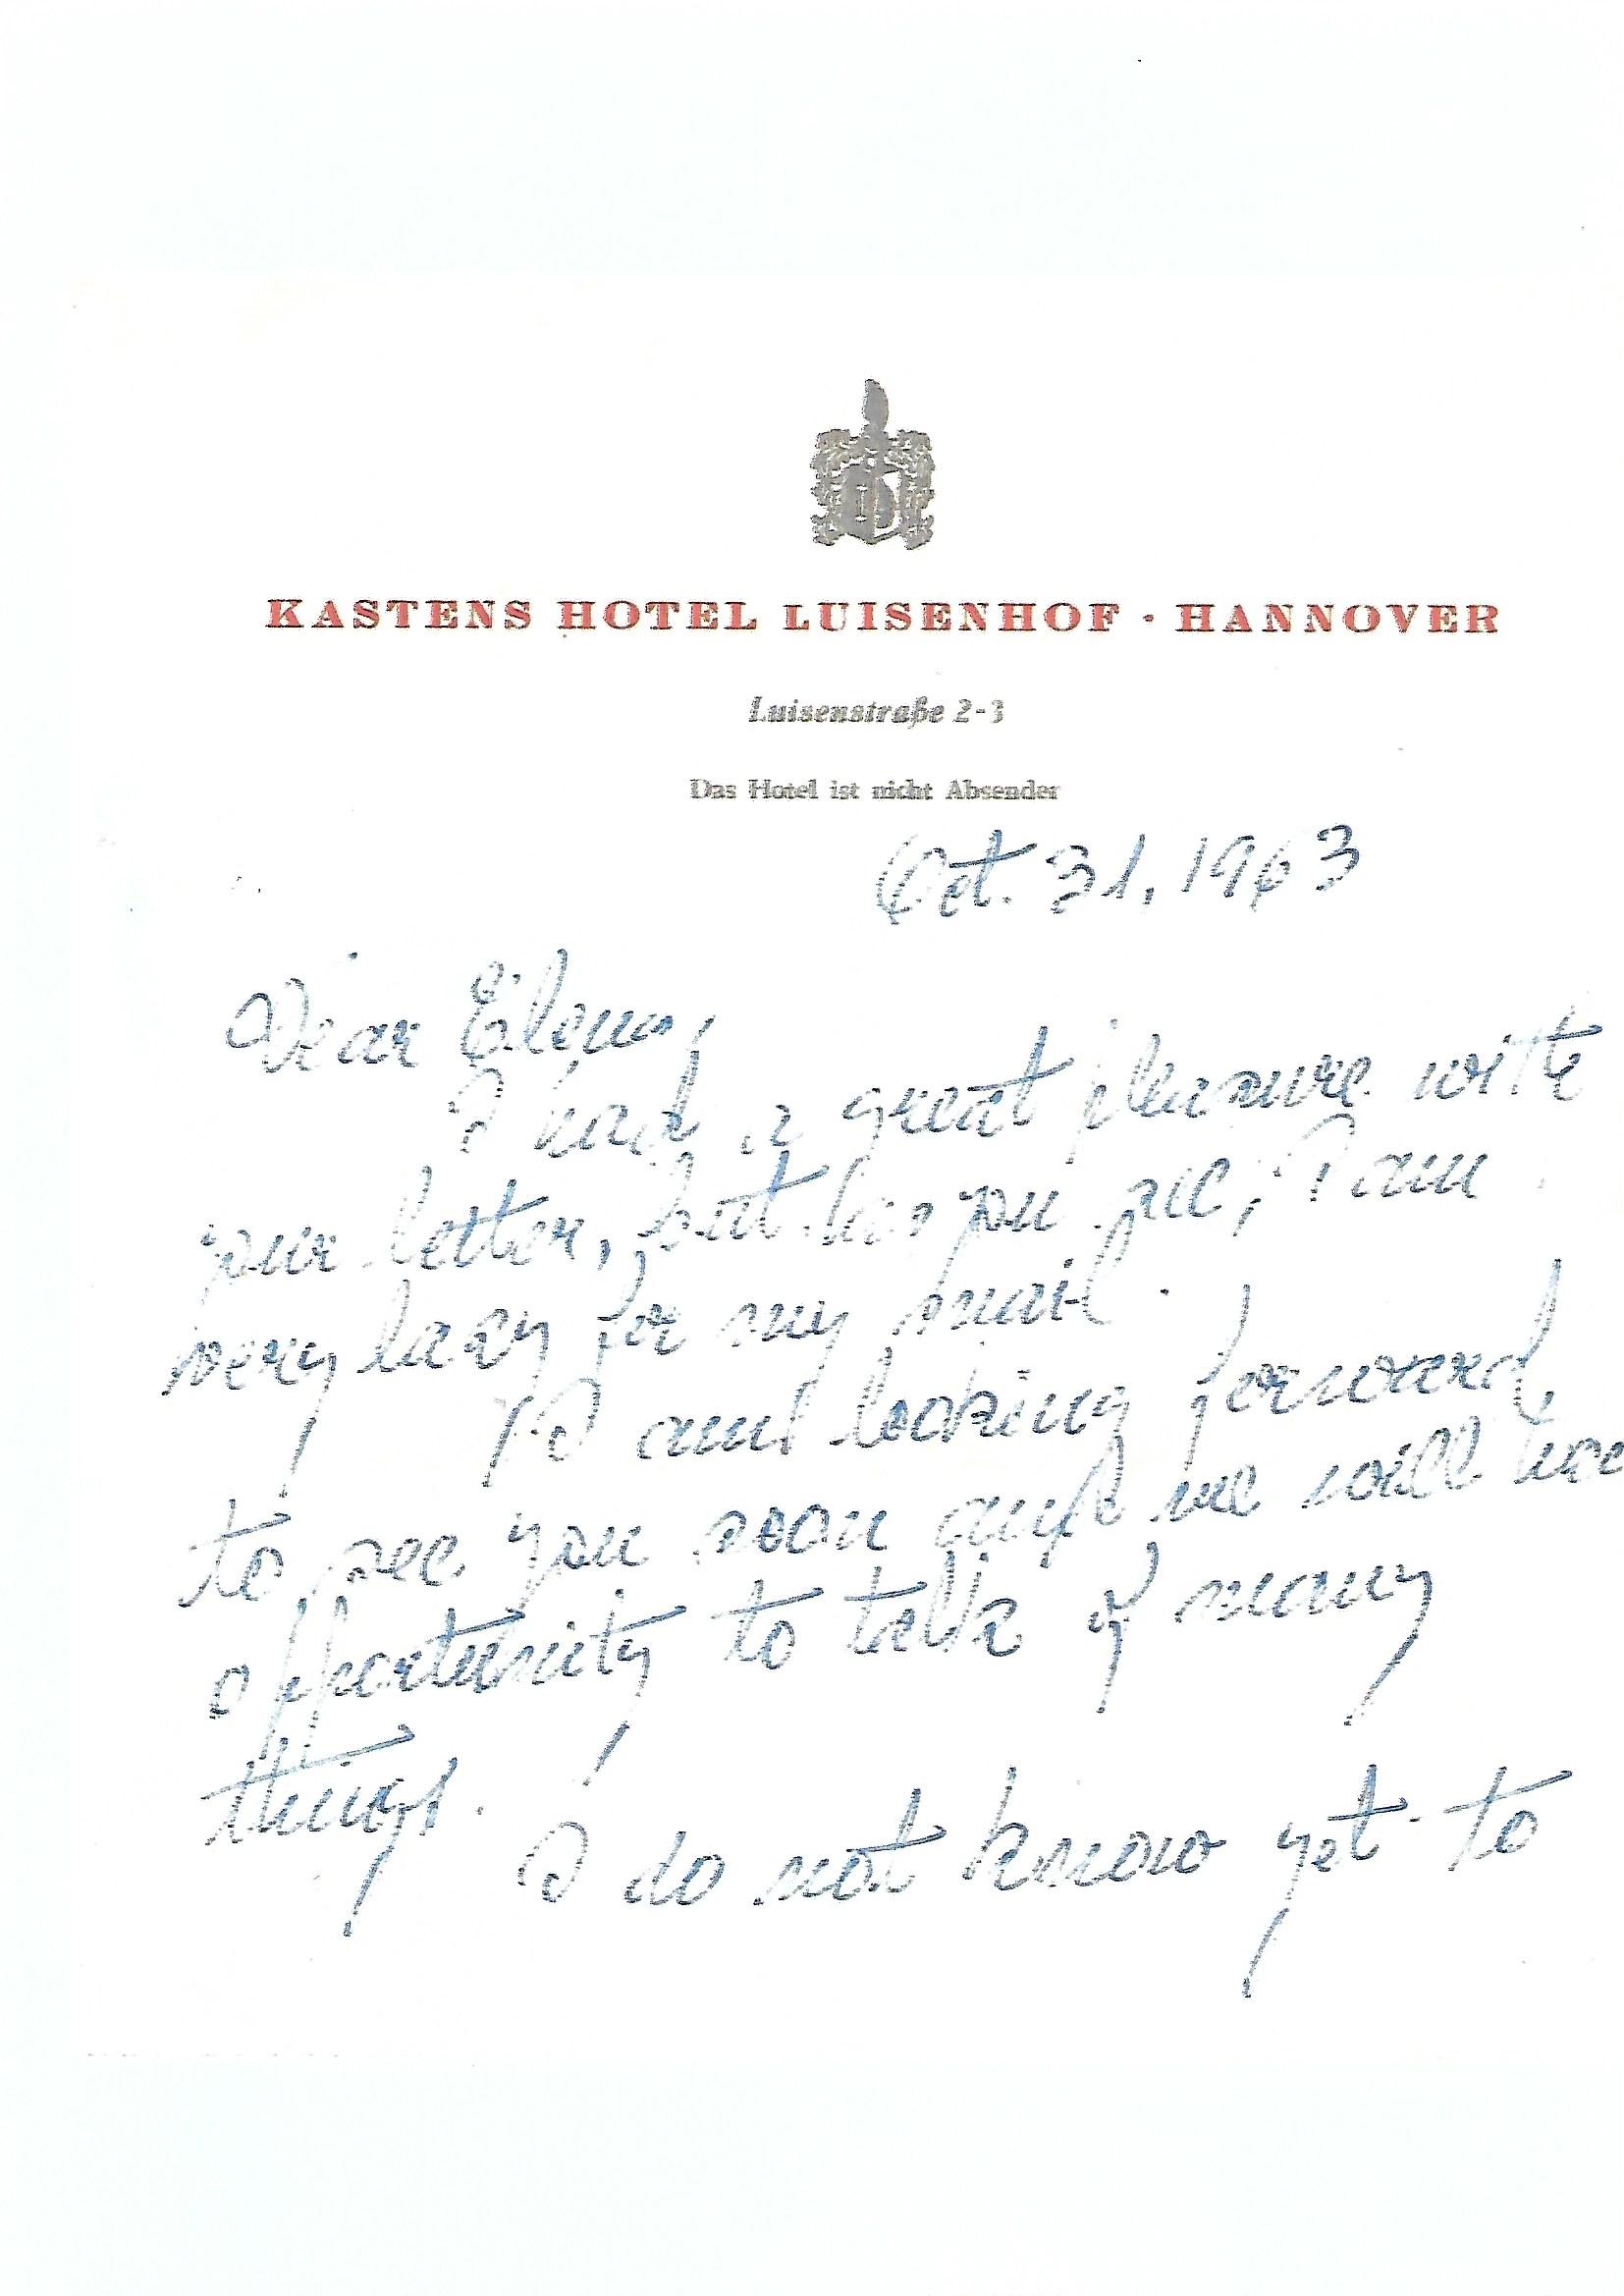 KASTENS HOTEL LUISENHOF · HANNOVER
Luisenstraße 2-3
Das Hotel ist nicht Absender
Oct. 31, 1963
Dear
I had a great pleasure with
your letter, but as you see, I am
very lazy for my mail.
I am looking forward
to see you soon and we will
opportunity to talk of many
things.
I do not know yet to